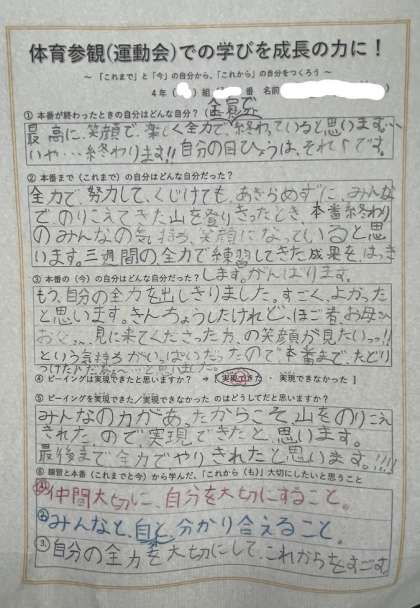 体育参観(運動会)での学びを成長の力に！
～「これまで」と「今」の自分から、「これから」の自分をつくろう～
4年( )組( )番 名前( )
① 本番が終わったときの自分はどんな自分？(全員で
最高に、笑顔で、楽しく全力で、終わっていると思います。
いや…終わります!!自分の目ひょうは、それです。
② 本番まで(これまで)の自分はどんな自分だった？
全力で、努力して、くじけても、あきらめずに、みんな
でのりこえてきた山を登りきったとき、本番終わり
のみんなの気持ち、笑顔になっていると思
います。三週間の全力で練習してきた成果を、はっき
します。がんばります。
③ 本番の(今)の自分はどんな自分だった？
もう、自分の全力を出しきりました。すごく、よかった
と思います。きんちょうしたけれど、ほご者、お母さん
お父…見に来てくださった方、の笑顔が見たいっ!!
という気持ちがいっぱいだったので本番まで、たどり
つけた
④ ビーイングは実現できたと思いますか？ → [ 実現できた ・ 実現できなかった ]
⑤ ビーイングを実現できた/実現できなかった のはどうしてだと思いますか？
みんなの力があったからこそ、山をのりこえ
きれた。ので実現できたと思います。
最後まで全力でやりきれたと思います。!!!!
⑥ 練習と本番(これまでと今)から学んだ、「これから(も)」大切にしたいと思うこと
仲間大切に、自分を大切にすること。
みんなと、自と分かり合えること。
3.自分の全力を大切にして、これからをすごす